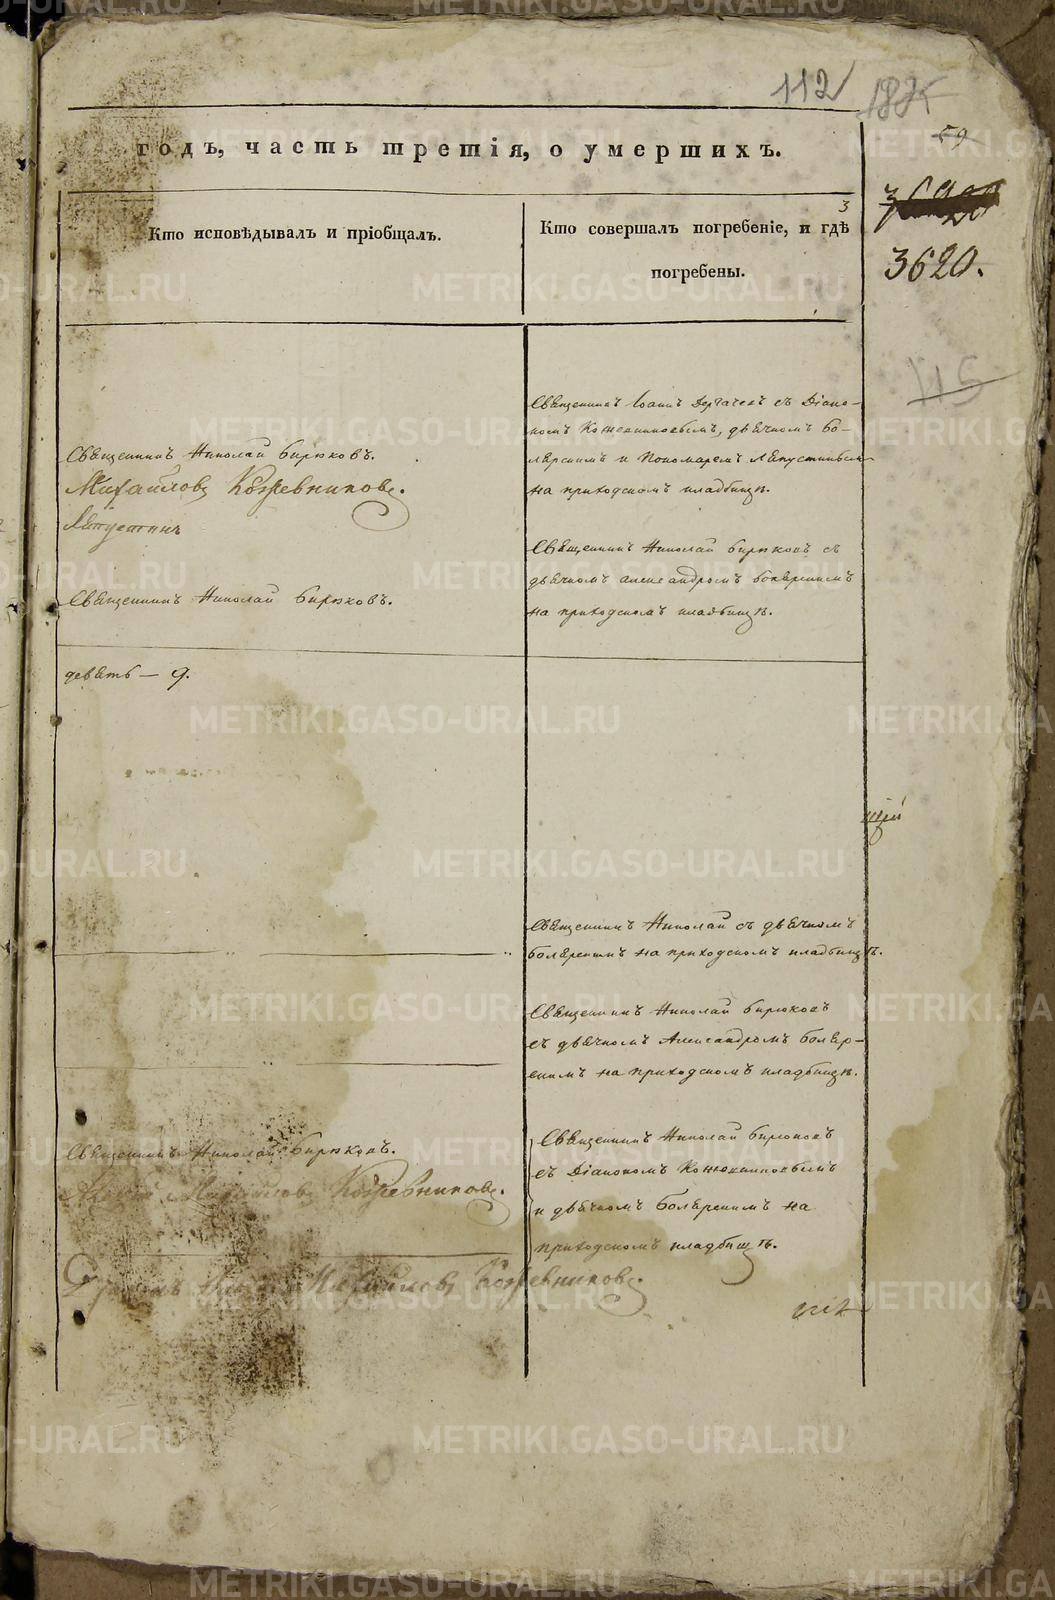 112
годъ, часть третія, о умершихъ.
59
3
3620.
Кто исповѣдывалъ и пріобщалъ.
Кто совершалъ погребеніе, и гдѣ
погребены.
115
Священникъ Іоаннъ Дергачевъ съ Діако-
номъ Кожевниковымъ, дьячкомъ Бо-
ярскимъ и Пономаремъ Лапустинымъ
на приходскомъ кладбищѣ.
Священникъ Николай Бирюковъ.
Михайловъ Кожевниковъ.
Лапустинъ
Священникъ Николай Бирюковъ съ
дьячкомъ Александромъ Боярскимъ
на приходскомъ кладбищѣ.
Священникъ Николай Бирюковъ.
девять — 9.
Священникъ Николай съ дьячкомъ
Боярскимъ на приходскомъ кладбищѣ.
Священникъ Николай Бирюковъ
съ дьячкомъ Александромъ Бояр-
скимъ на приходскомъ кладбищѣ.
Священникъ Николай Бирюковъ.
Михайловъ Кожевниковъ.
Священникъ Николай Бирюковъ
съ Діакономъ Кожевниковымъ
и дьячкомъ Боярскимъ на
приходскомъ кладбищѣ.
Михайловъ Кожевниковъ.
METRIKI.GASO-URAL.RU